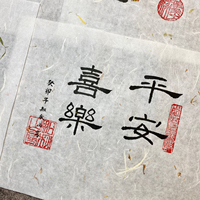 平安
喜樂
癸卯年